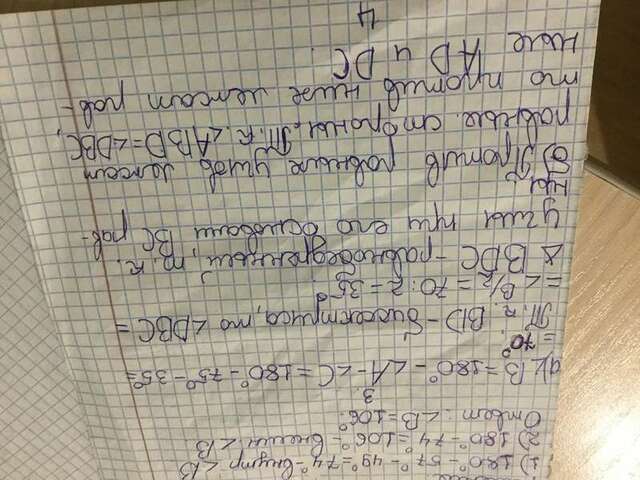 1) 180° - 57° - 49° = 74° - внутр ∠B
2) 180° - 74° = 106° - внешн ∠B
Ответ: ∠B = 106°.
3.
а) ∠B = 180° - ∠A - ∠C = 180° - 75° - 35° =
= 70°.
Т. к. BD - биссектриса, то ∠DBC =
= ∠B/2 = 70 : 2 = 35°
△ BDC - равнобедренный, т. к.
углы при его основаии BC рав-
ны
б) Против равных углов лежат
равные стороны. Т. к. ∠ABD = ∠DBC,
то против них лежат рав-
ные AD и DC.
4